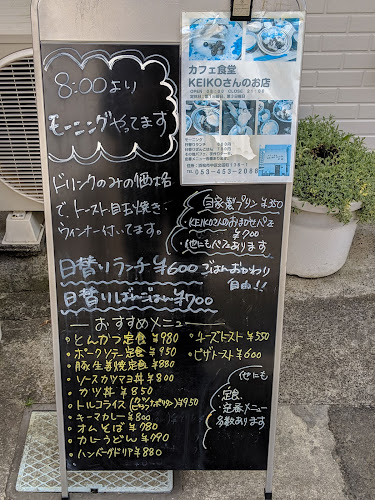 8:00より
モーニングやってます
ドリンクのみの価格
で、トースト目玉焼き
ウィンナー付いてます。
カフェ食堂
KEIKOさんのお店
TEL 053-453-2088
自家製プリン ¥350
・KEIKOさんのおまかせパフェ
¥700
・他にもパフェあります
日替りランチ ¥600 ごはんおかわり
自由!!
日替りばんごはん ¥700
おすすめメニュー
・とんかつ定食 ¥980
・ポークソテー定食 ¥980
・豚生姜焼定食 ¥880
・ソースカツマヨ丼 ¥800
・カツ丼 ¥850
・トルコライス ¥950
・キーマカレー ¥800
・オムそば ¥780
・カレーうどん ¥790
・ハンバーグドリア ¥880
・チーズトースト ¥550
・ピザトースト ¥600
他にも
定食
定番メニュー
多数あります